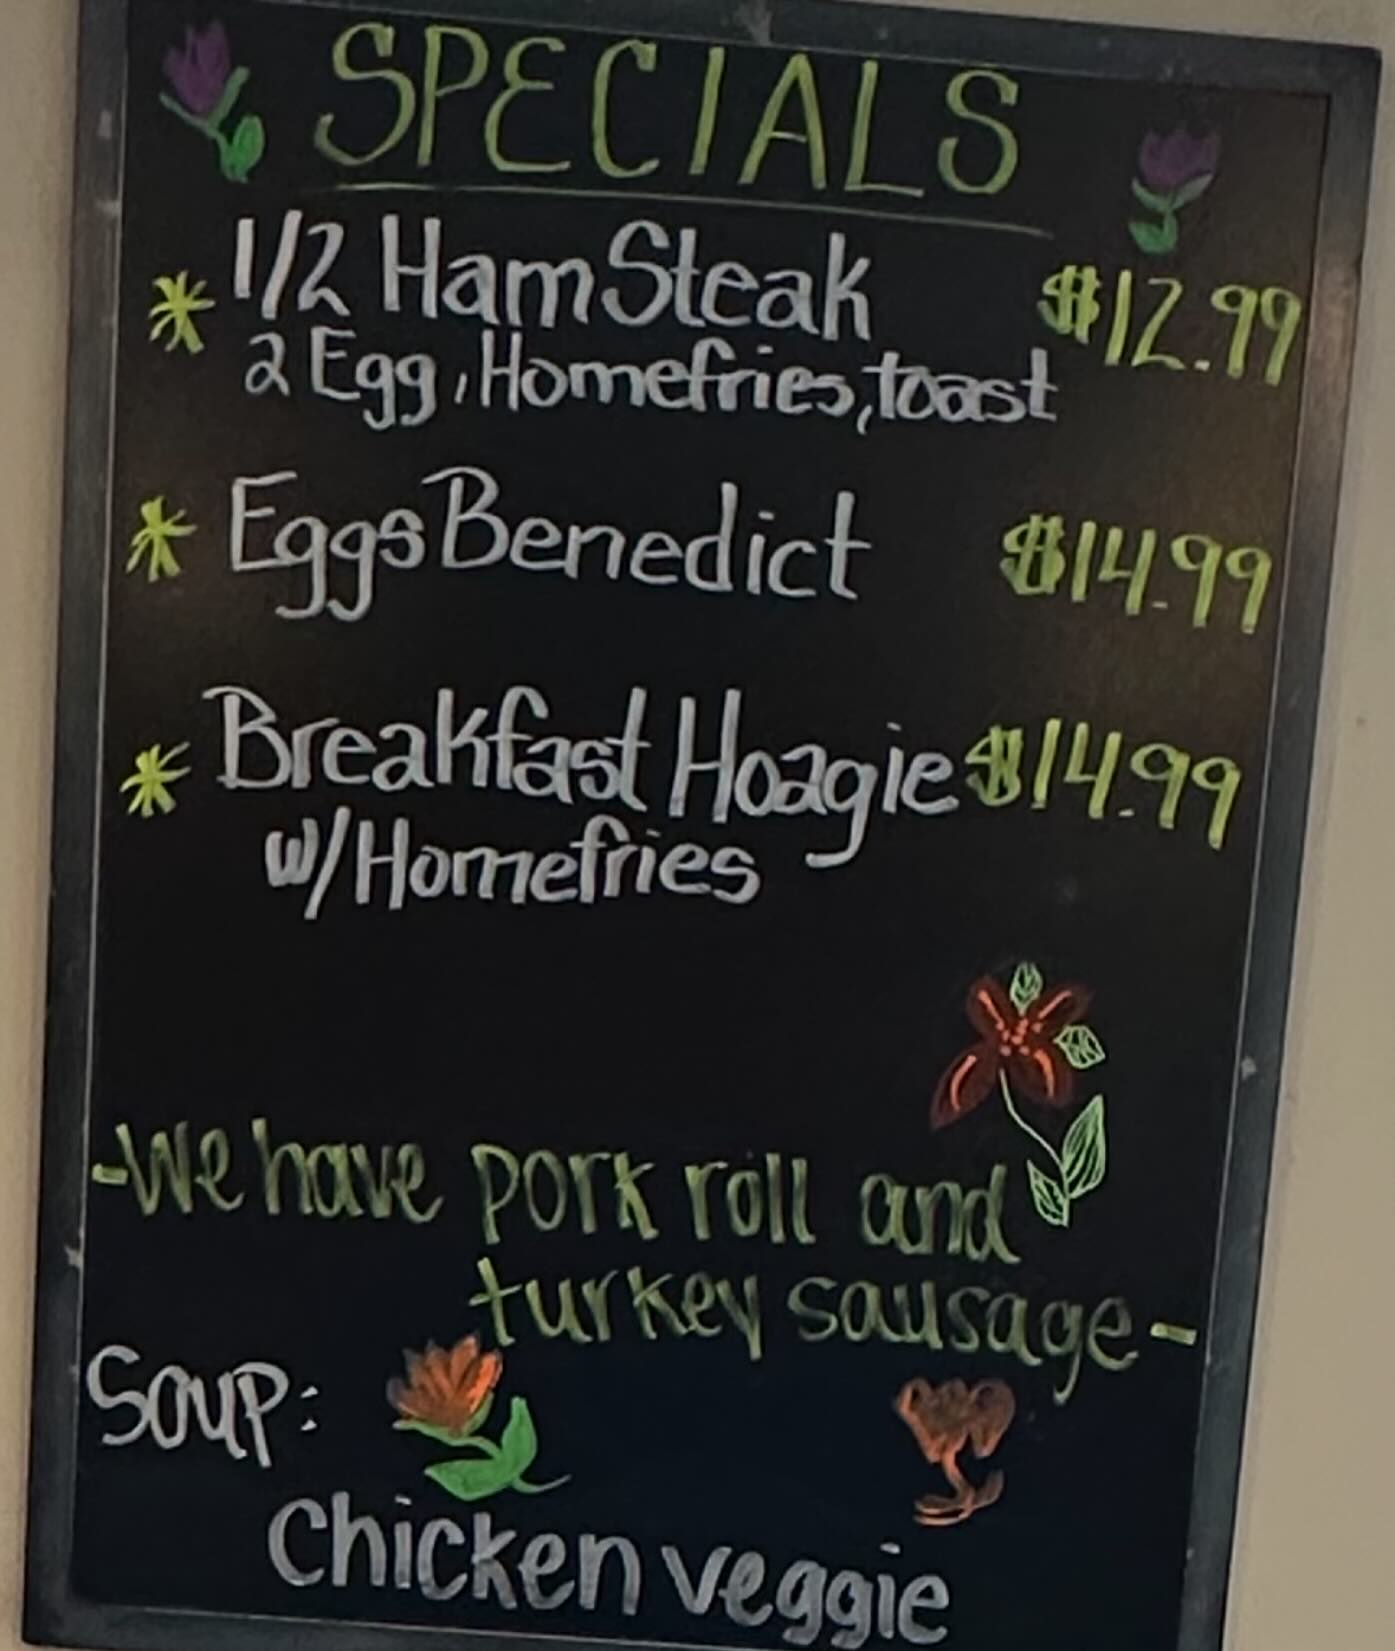 SPECIALS
* 1/2 Ham Steak $12.99
2 Egg, Homefries, toast
* Eggs Benedict $14.99
* Breakfast Hoagie $14.99
w/Homefries
-We have pork roll and
turkey sausage-
Soup:
Chicken veggie